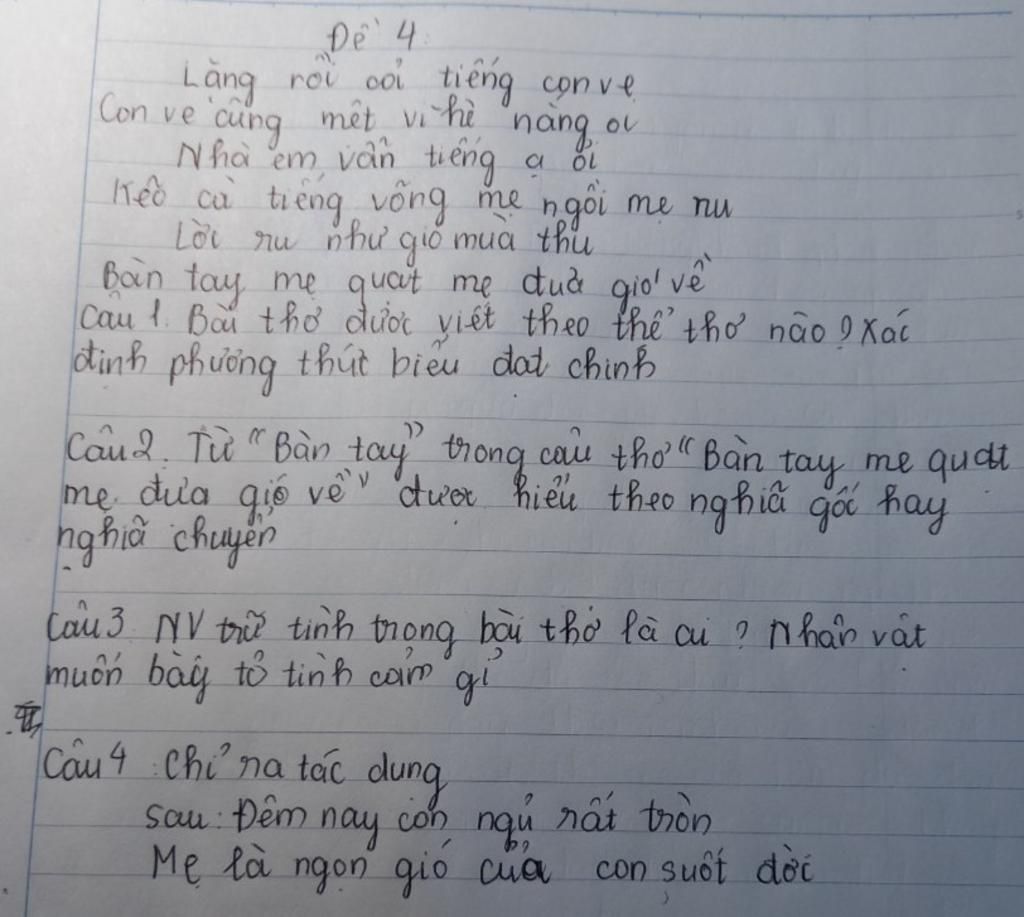 Đề 4:
Lặng rồi cái tiếng con ve
Con ve cũng mệt vì hè nắng oi
Nhà em vẫn tiếng ạ ời
Kẽo cà tiếng võng mẹ ngồi mẹ ru
Lời ru như gió mùa thu
Bàn tay mẹ quạt mẹ đưa gió về
Câu 1. Bài thơ được viết theo thể thơ nào? Xác
định phương thức biểu đạt chính
Câu 2. Từ "Bàn tay" trong câu thơ "Bàn tay mẹ quạt
mẹ đưa gió về" được hiểu theo nghĩa gốc hay
nghĩa chuyển
Câu 3 NV trữ tình trong bài thơ là ai? Nhân vật
muốn bày tỏ tình cảm gì
Câu 4: Chỉ ra tác dụng
sau: Đêm nay con ngủ rất tròn
Mẹ là ngọn gió của con suốt đời